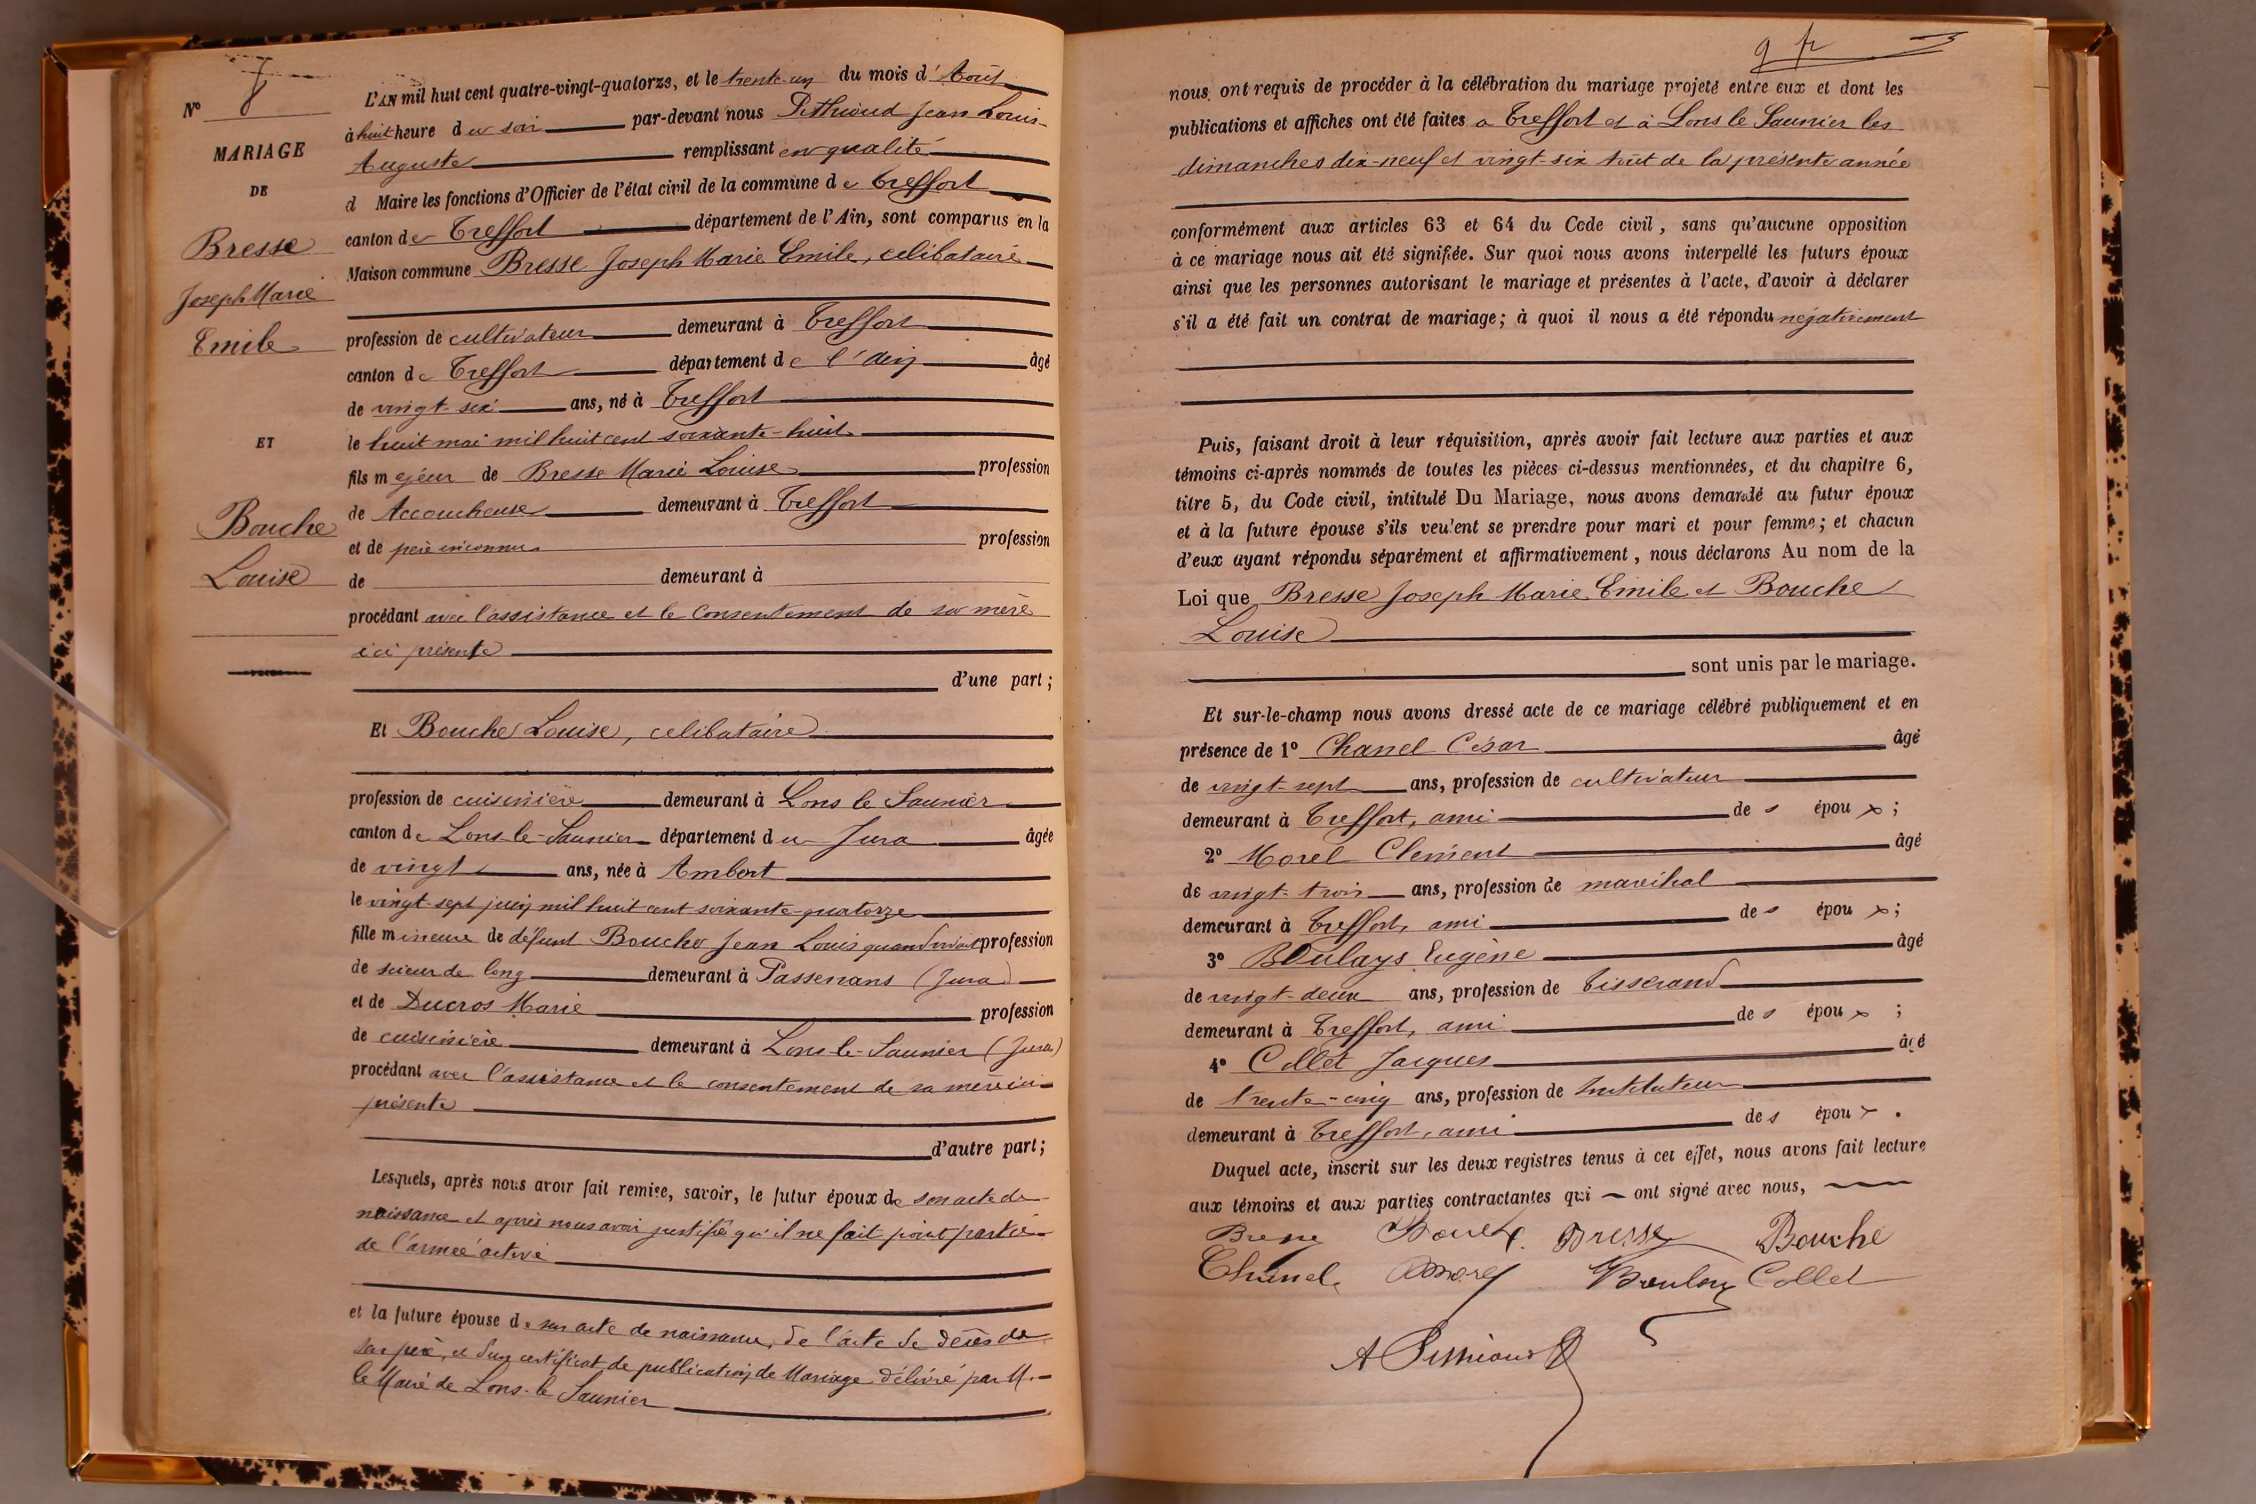 N° 8
MARIAGE
DE
Bresse
Joseph Marie
Emile
ET
Bouche
Louise
L'AN mil huit cent quatre-vingt-quatorze, et le trente-un du mois d'Août
à huit heure du soir par-devant nous Pithioud Jean Louis
Auguste remplissant en qualité
d Maire les fonctions d'Officier de l'état civil de la commune de Treffort
canton de Treffort département de l'Ain, sont comparus en la
Maison commune Bresse Joseph Marie Emile, célibataire
profession de cultivateur demeurant à Treffort
canton de Treffort département de l'Ain âgé
de vingt-six ans, né à Treffort
le huit mai mil huit cent soixante-huit
fils majeur de Bresse Marie Louise profession
de Accoucheuse demeurant à Treffort
et de père inconnu profession
de demeurant à
procédant avec l'assistance et le consentement de sa mère
ici présente
d'une part;
Et Bouche Louise, célibataire
profession de cuisinière demeurant à Lons le Saunier
canton de Lons-le-Saunier département du Jura âgée
de vingt ans, née à Ambert
le vingt-sept juin mil huit cent soixante-quatorze
fille mineure de défunt Bouche Jean Louis quand vivait profession
de scieur de long demeurant à Passenans (Jura)
et de Ducros Marie profession
de cuisinière demeurant à Lons-le-Saunier (Jura)
procédant avec l'assistance et le consentement de sa mère ici
présente
d'autre part;
Lesquels, après nous avoir fait remise, savoir, le futur époux de son acte de
naissance et après nous avoir justifié qu'il ne fait point partie
de l'armée active
et la future épouse de son acte de naissance, de l'acte de décès de
son père, et d'un certificat de publication de Mariage délivré par M.
le Maire de Lons-le Saunier
9 fr
nous ont requis de procéder à la célébration du mariage projeté entre eux et dont les
publications et affiches ont été faites à Treffort et à Lons le Saunier les
dimanches dix-neuf et vingt-six août de la présente année
conformément aux articles 63 et 64 du Code civil, sans qu'aucune opposition
à ce mariage nous ait été signifiée. Sur quoi nous avons interpellé les futurs époux
ainsi que les personnes autorisant le mariage et présentes à l'acte, d'avoir à déclarer
s'il a été fait un contrat de mariage; à quoi il nous a été répondu négativement
Puis, faisant droit à leur réquisition, après avoir fait lecture aux parties et aux
témoins ci-après nommés de toutes les pièces ci-dessus mentionnées, et du chapitre 6,
titre 5, du Code civil, intitulé Du Mariage, nous avons demandé au futur époux
et à la future épouse s'ils veulent se prendre pour mari et pour femme; et chacun
d'eux ayant répondu séparément et affirmativement, nous déclarons Au nom de la
Loi que Bresse Joseph Marie Emile et Bouche
Louise
sont unis par le mariage.
Et sur-le-champ nous avons dressé acte de ce mariage célébré publiquement et en
présence de 1° Chanel César âgé
de vingt-sept ans, profession de cultivateur
demeurant à Treffort, ami des époux;
2° Morel Clément âgé
de vingt-trois ans, profession de maréchal
demeurant à Treffort, ami des époux;
3° Boulays Eugène âgé
de vingt-deux ans, profession de tisserand
demeurant à Treffort, ami des époux;
4° Collet Jacques âgé
de trente-cinq ans, profession de Instituteur
demeurant à Treffort, ami des époux.
Duquel acte, inscrit sur les deux registres tenus à cet effet, nous avons fait lecture
aux témoins et aux parties contractantes qui ont signé avec nous,
Bresse Bresse Bouche
Chanel Morel Collet